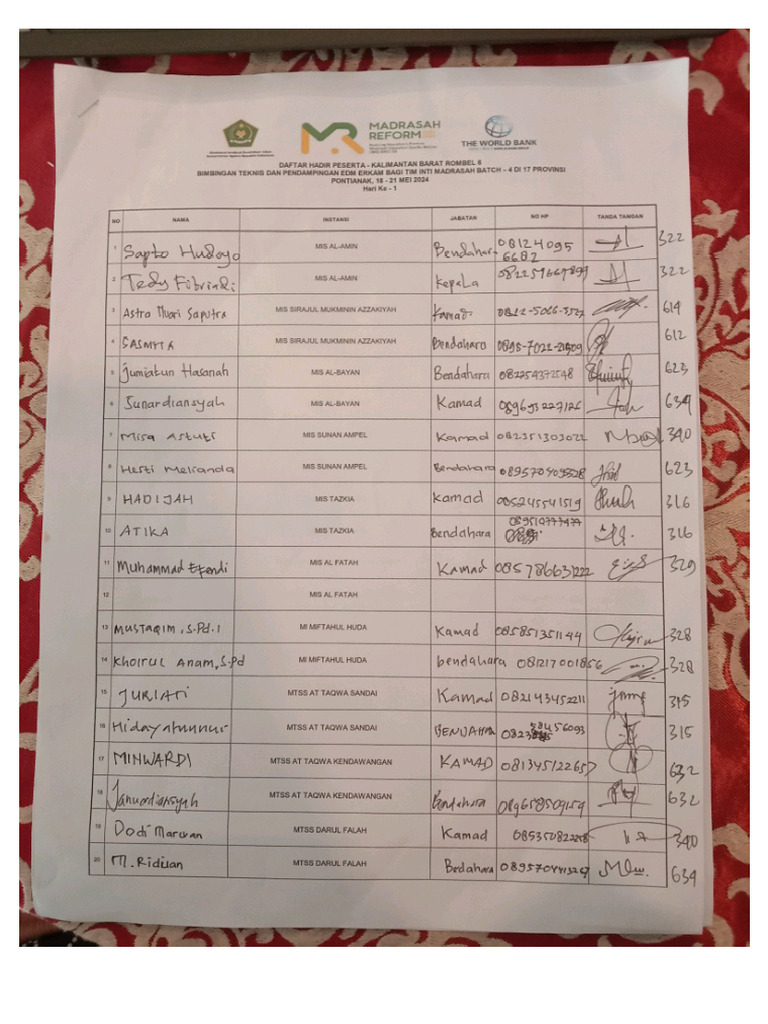 MADRASAH
REFORM
THE WORLD BANK
DAFTAR HADIR PESERTA - KALIMANTAN BARAT ROMBEL 6
BIMBINGAN TEKNIS DAN PENDAMPINGAN EDM ERKAM BAGI TIM INTI MADRASAH BATCH – 4 DI 17 PROVINSI
PONTIANAK, 18 - 21 MEI 2024
Hari Ke - 1
NO NAMA INSTANSI JABATAN NO HP TANDA TANGAN
1 Sapto Hudoyo MIS AL-AMIN Bendahara 08124095 6682 322
2 Tedy Fibriadi MIS AL-AMIN Kepala 322
3 Astra Muari Saputra MIS SIRAJUL MUKMININ AZZAKIYAH Kamad 614
4 SASMITA MIS SIRAJUL MUKMININ AZZAKIYAH Bendahara 612
5 Jumiatun Hasanah MIS AL-BAYAN Bendahara 082254372548 623
6 Sunardiansyah MIS AL-BAYAN Kamad 089693227126 634
7 Misa Astuti MIS SUNAN AMPEL Kamad 082351303022 340
8 Hesti Meiranda MIS SUNAN AMPEL Bendahara 623
9 HADIJAH MIS TAZKIA Kamad 085245541519 316
10 ATIKA MIS TAZKIA Bendahara 316
11 Muhammad Efendi MIS AL FATAH Kamad 085786631222 329
12 MIS AL FATAH
13 MUSTAQIM, S.Pd.I MI MIFTAHUL HUDA Kamad 085851351144 328
14 Khoirul Anam, S.Pd MI MIFTAHUL HUDA bendahara 081217001856 328
15 JURIATI MTSS AT TAQWA SANDAI Kamad 082143452211 315
16 Hidayatunnur MTSS AT TAQWA SANDAI BENDAHARA 315
17 MINWARDI MTSS AT TAQWA KENDAWANGAN KAMAD 081345122657 632
18 Januardiansyah MTSS AT TAQWA KENDAWANGAN Bendahara 089658509159 632
19 Dodi Marwan MTSS DARUL FALAH Kamad 340
20 M. Riduan MTSS DARUL FALAH Bedahara 634